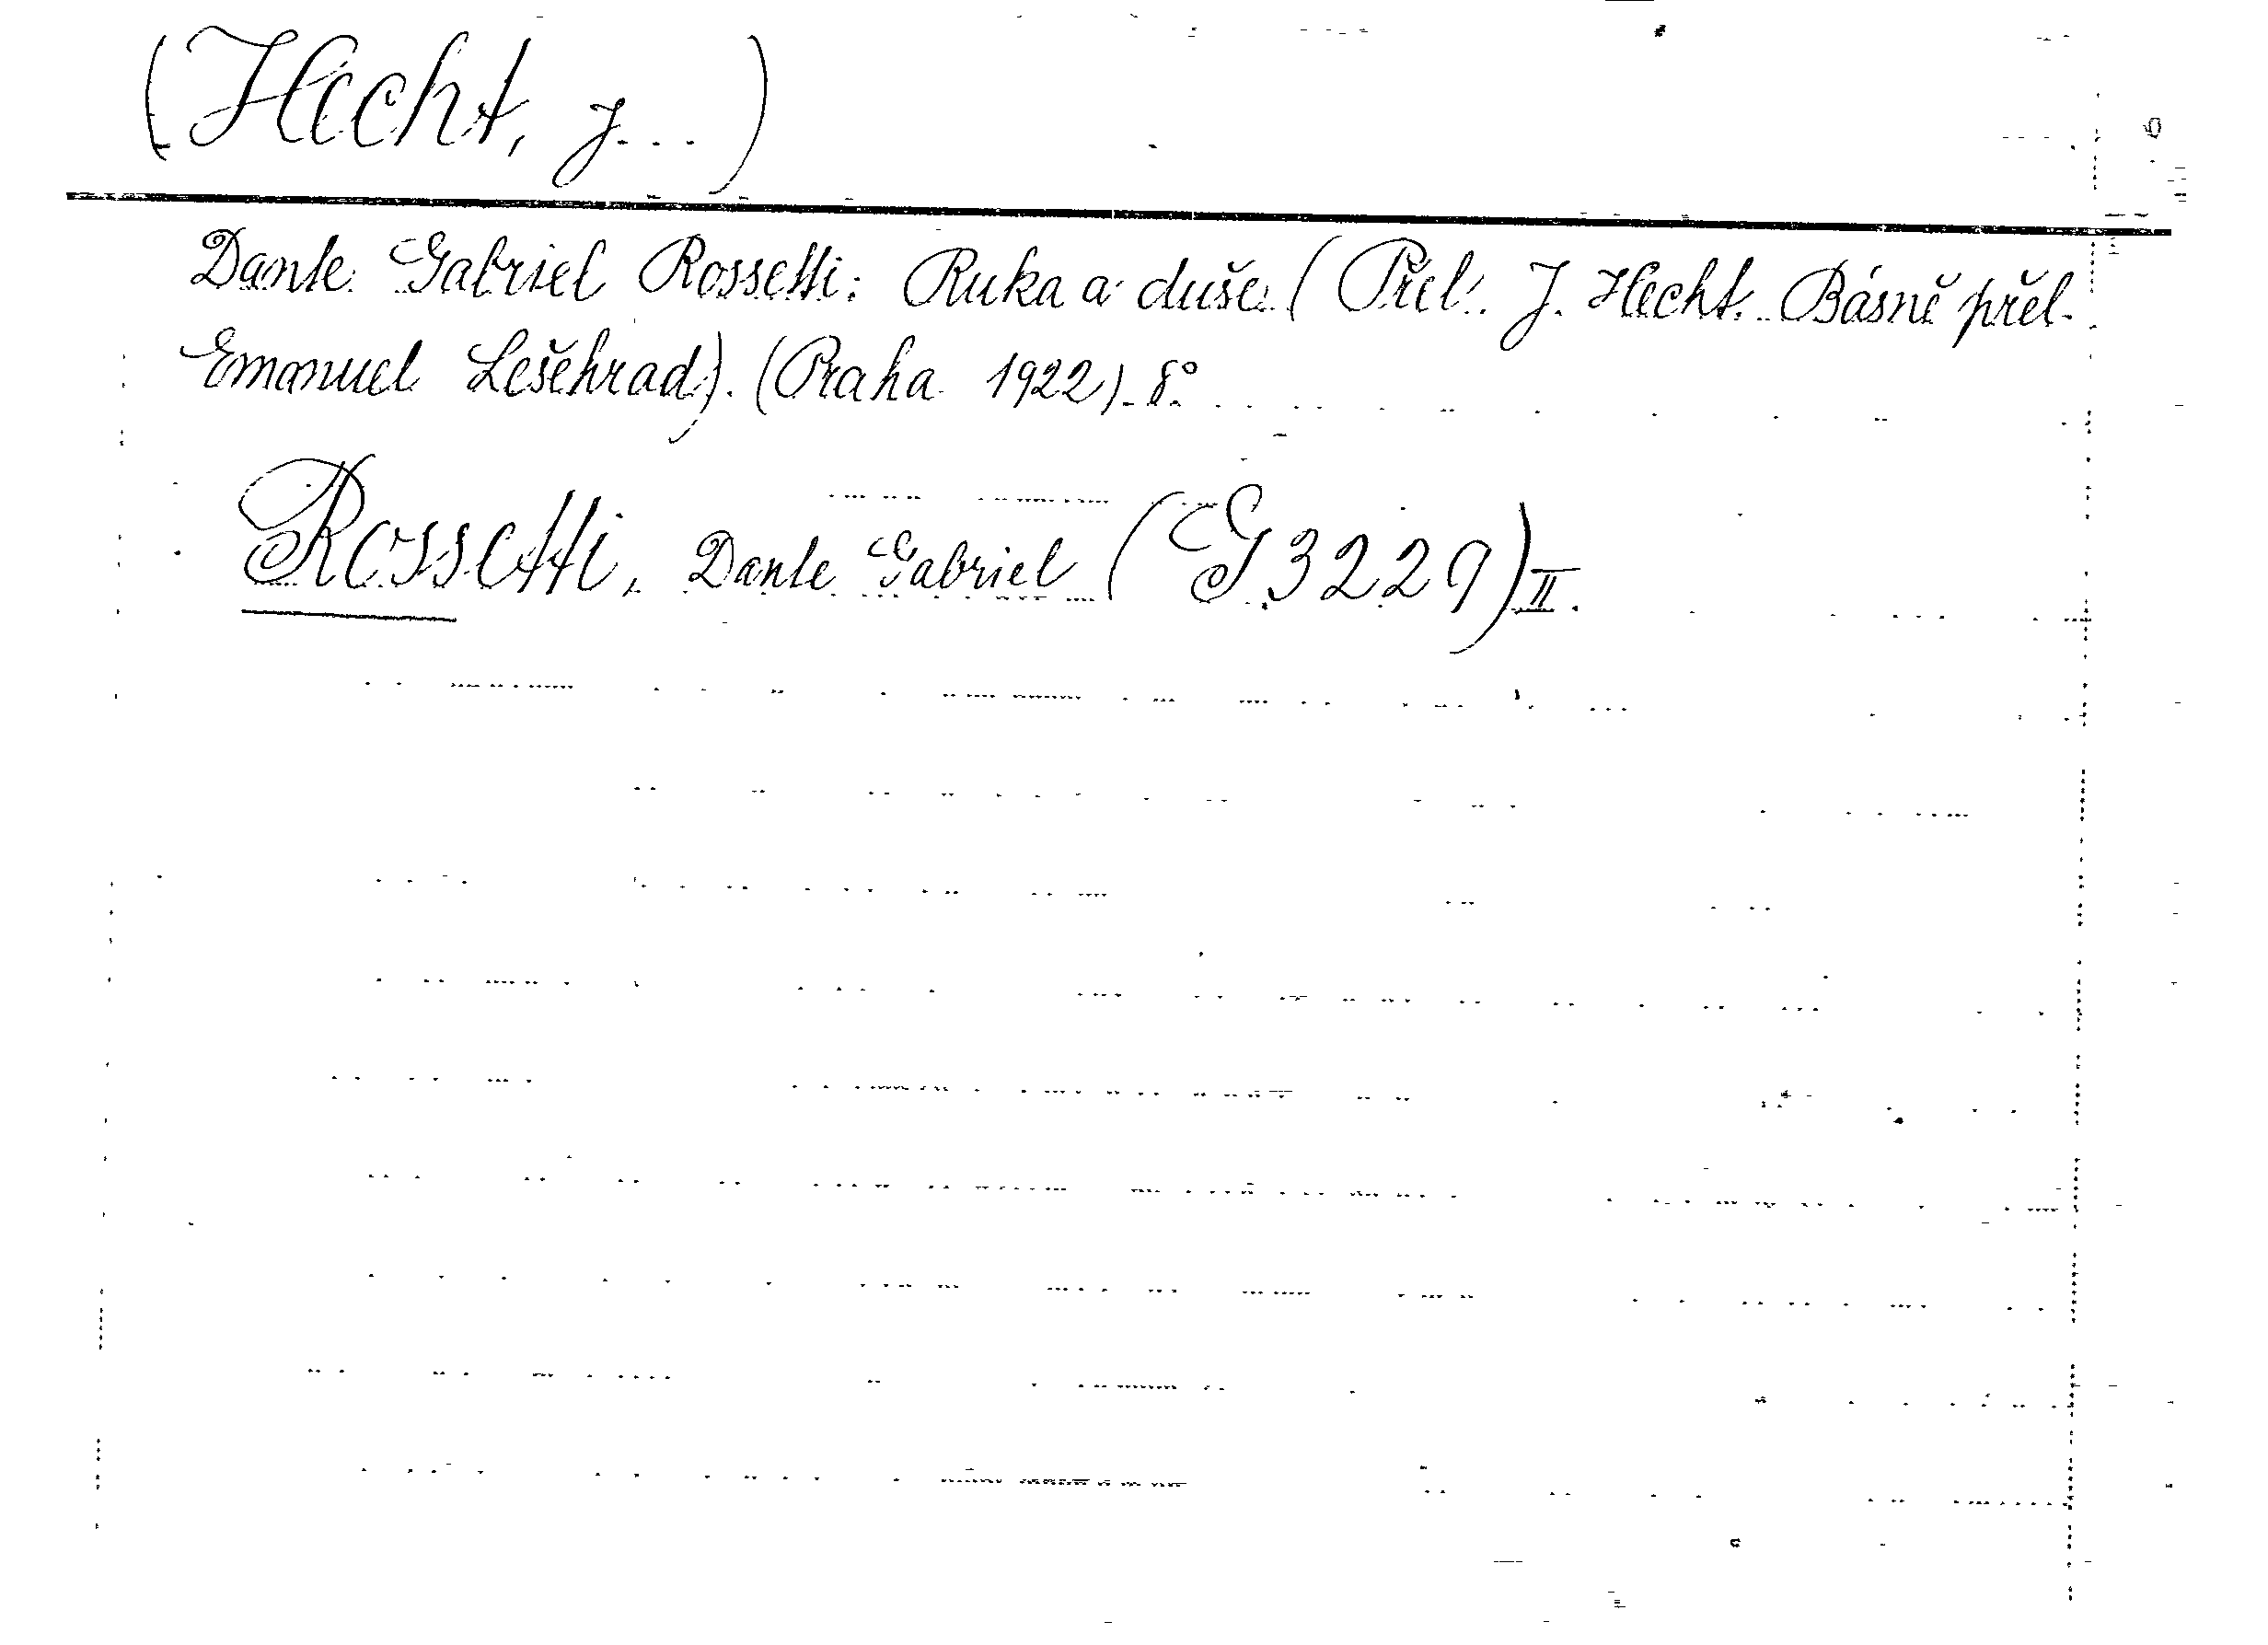 (Hecht, J...)
Dante Gabriel Rossetti: Ruka a duše. (Přel. J. Hecht. Básně přel.
Emanuel Lešehrad). (Praha 1922). 8°.
Rossetti, Dante Gabriel (G 3229) II.